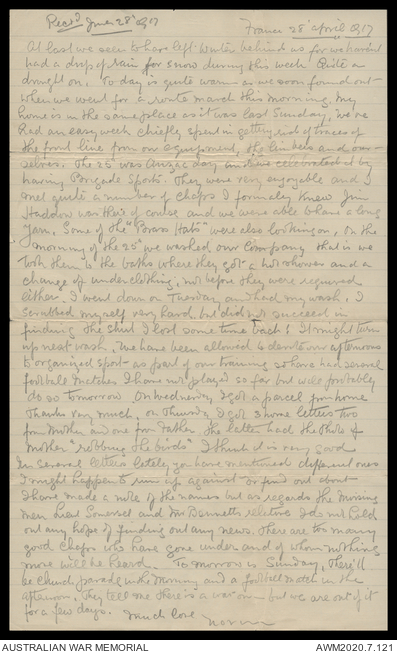 Recd June 28' 1917
France 28' April 1917
At last we seem to have left Winter behind us for we haven't
had a drop of rain for snow during this week Quite a
drought on. To day is quite warm as we soon found out
when we went for a route march this morning. My
home is in the same place as it was last Sunday, we've
had an easy week chiefly spent in getting rid of traces of
the front line from our equipment, the limbers and our-
selves. The 25' was Anzac day and we celebrated it by
having Brigade Sports. They were very enjoyable and I
met quite a number of chaps I formerly knew Jim
Haddon was there of course and we were able to have a long
yarn. Some of the "Brass Hats" were also looking on. On the
morning of the 25' we washed our Company that is we
took them to the baths where they got a hot shower and a
change of underclothing, not before they were required
either. I went down on Tuesday and had my wash. I
scrubbed myself very hard but did not succeed in
finding the shirt I lost some time back! It might turn
up next wash. We have been allowed to devote our afternoons
to organized sport as part of our training so have had several
football matches I have not played so far but will probably
do so tomorrow On Wednesday I got a parcel from home
Thanks very much, on Thursday I got 3 home letters two
from Mother and one from Father. The latter had the Photo of
Mother "robbing the birds" I think it is very good
In several letters lately you have mentioned different ones
I might happen to run up against or find out about
I have made a note of the names but as regards the missing
men, Lieut Somerset and Mr Bennetts relative I do not hold
out any hope of finding out any news. There are too many
good chaps who have gone under and of whom nothing
more will be heard. To morrow is Sunday, there'll
be church parade in the morning and a football match in the
afternoon. They tell me there is a war on - but we are out of it
for a few days. Much love
AUSTRALIAN WAR MEMORIAL
AWM2020.7.121